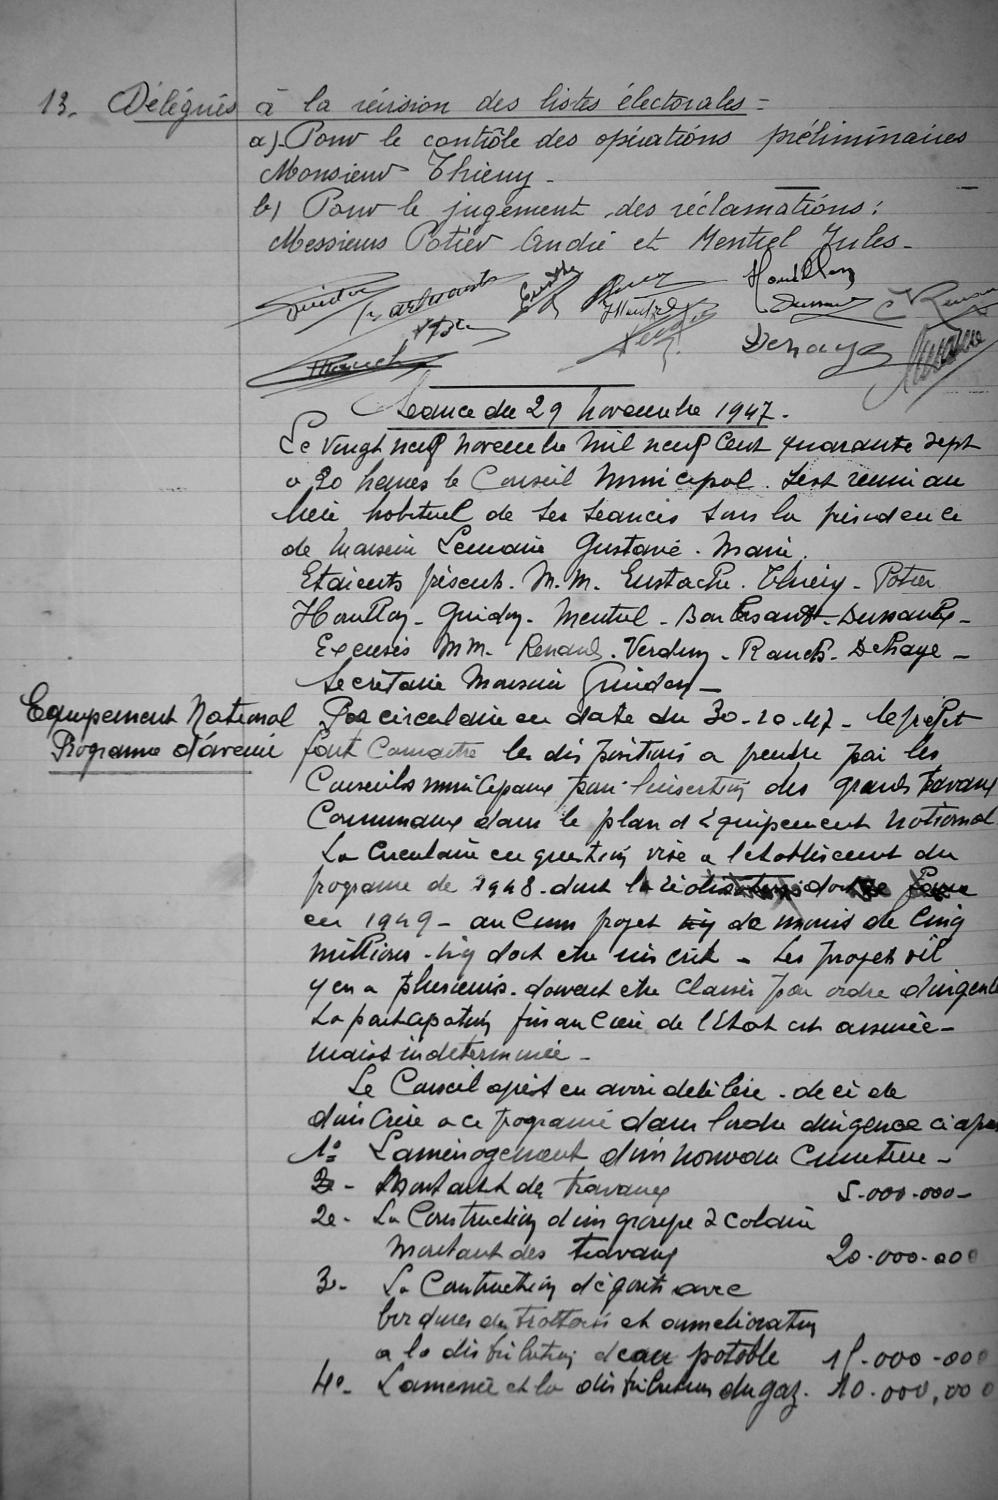 13. Délégués à la révision des listes électorales =
a)- Pour le contrôle des opérations préliminaires
Monsieur Thierry -
b) Pour le jugement des réclamations :
Messieurs Potier André et Mentiel Jules -
Houillon
Dehaye
Séance du 29 novembre 1947.
Le vingt neuf novembre mil neuf cent quarante sept
a 20 heures le Conseil Municipal s'est reuni au
lieu habituel de ses seances sous la présidence
de Monsieur Lemaire Gustave - Maire.
Etaients présents. M.M. Eustache - Thierry - Potier
Houillon - Guidon - Mentiel - Barbesant - Dussaulx -
Excusés MM. Renard - Verdun - Ranch - Dehaye -
Secrétaire Monsieur Guidon -
Equipement National
Programme d'avenir
Par circulaire en date du 30-10-47 - le préfet
fait Connaitre les dispositions a prendre par les
Conseils municipaux pour l'insertion des grands travaux
Communaux dans le plan d'équipement National
La Circulaire en question vise a l'etablissement du
programe de 1948 - dont la
en 1949 - aucun projet de moins de Cinq
millions - n'y doit etre inscrit - Les projets s'il
y en a plusieurs - doivent etre Classés par ordre d'urgence
La participation financiere de l'Etat est assurée -
mais indeterminée -
Le Conseil après en avoir délibéré - décide
d'inscrire a ce programe dans l'ordre d'urgence ci apres
1° L'aménagement d'un nouveau Cimetiere -
Montant des travaux 5.000.000 -
2e - La Construction d'un groupe scolaire
Montant des travaux 20.000.000
3 - La Contruction d'égouts avec
bordures de trottoirs et amelioration
a la distribution d'eau potable 15.000.000
4e - L'amenée et la distribution du gaz. 10.000,000